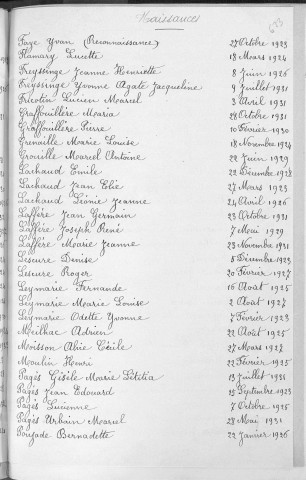 Naissances
633
Faye Yvan (Reconnaissance) 27 Octobre 1923
Flamary Lucette 18 Mars 1924
Freyssinge Jeanne Henriette 8 Juin 1926
Freyssinge Yvonne Agate Jacqueline 9 Juillet 1931
Fricotin Lucien Marcel 3 Avril 1931
Graffouillère Maria 28 Octobre 1931
Graffouillère Pierre 10 Février 1930
Grenaille Marie Louise 18 Novembre 1924
Grouille Marcel Antoine 22 Juin 1929
Lachaud Emile 22 Décembre 1928
Lachaud Jean Elie 27 Mars 1923
Lachaud Léonie Jeanne 24 Avril 1926
Laffère Jean Germain 23 Octobre 1931
Laffère Joseph René 7 Mai 1929
Laffère Marie Jeanne 23 Novembre 1931
Lescure Denise 5 Décembre 1923
Lescure Roger 20 Février 1927
Leymarie Fernande 16 Août 1925
Leymarie Marie Louise 2 Août 1927
Leymarie Odette Yvonne 7 Février 1923
Meilhac Adrien 22 Août 1925
Moisson Alice Cécile 27 Mars 1927
Moulin Henri 22 Février 1925
Pagès Gisèle Marie Létitia 13 Juillet 1931
Pagès Jean Edouard 15 Septembre 1923
Pagès Lucienne 7 Octobre 1925
Pagès Urbain Marcel 28 Mai 1931
Poujade Bernadette 22 Janvier 1926